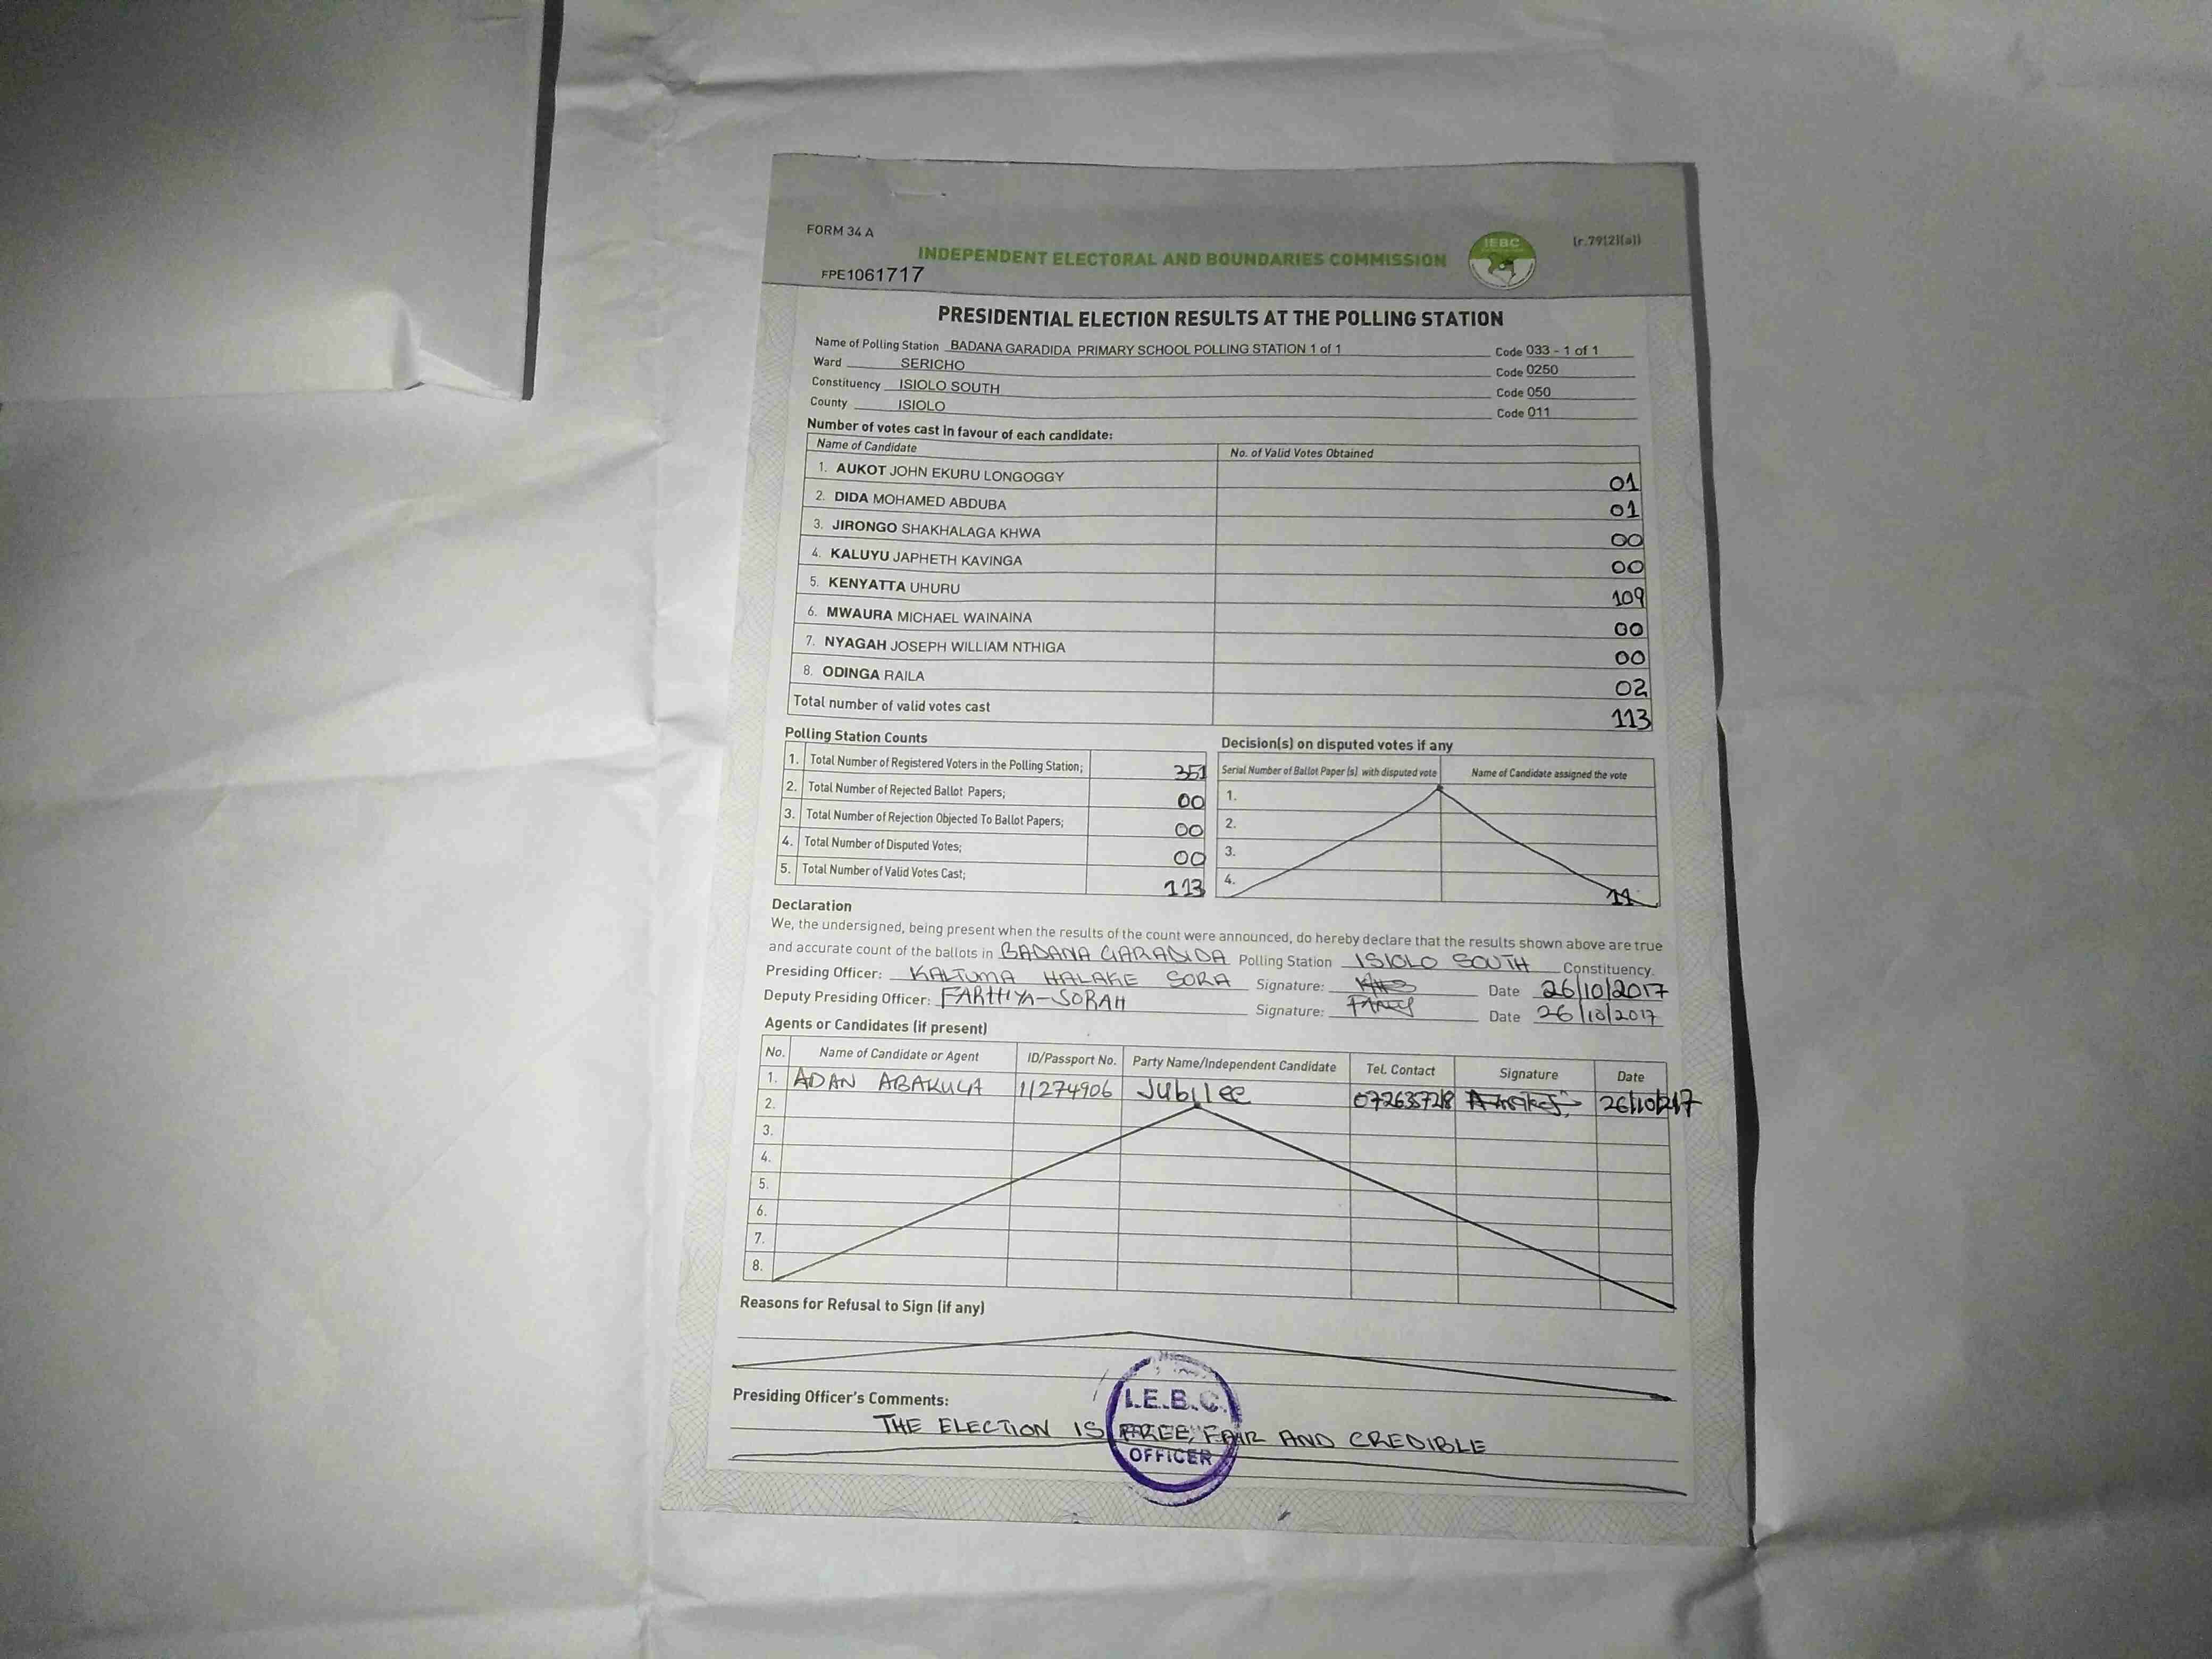 FORM 34 A
INDEPENDENT ELECTORAL AND BOUNDARIES COMMISSION
IEBC
(r.79(2)(a))
FPE1061717
PRESIDENTIAL ELECTION RESULTS AT THE POLLING STATION
Name of Polling Station BADANA GARADIDA PRIMARY SCHOOL POLLING STATION 1 of 1 Code 033 - 1 of 1
Ward SERICHO Code 0250
Constituency ISIOLO SOUTH Code 050
County ISIOLO Code 011
Number of votes cast in favour of each candidate:
Name of Candidate No. of Valid Votes Obtained
1. AUKOT JOHN EKURU LONGOGGY 01
2. DIDA MOHAMED ABDUBA 01
3. JIRONGO SHAKHALAGA KHWA 00
4. KALUYU JAPHETH KAVINGA 00
5. KENYATTA UHURU 109
6. MWAURA MICHAEL WAINAINA 00
7. NYAGAH JOSEPH WILLIAM NTHIGA 00
8. ODINGA RAILA 02
Total number of valid votes cast 113
Polling Station Counts
1. Total Number of Registered Voters in the Polling Station; 351
2. Total Number of Rejected Ballot Papers; 00
3. Total Number of Rejection Objected To Ballot Papers; 00
4. Total Number of Disputed Votes; 00
5. Total Number of Valid Votes Cast; 113
Decision(s) on disputed votes if any
Serial Number of Ballot Paper (s) with disputed vote Name of Candidate assigned the vote
1.
2.
3.
4.
Declaration
We, the undersigned, being present when the results of the count were announced, do hereby declare that the results shown above are true
and accurate count of the ballots in BADANA GARADIDA Polling Station ISIOLO SOUTH Constituency.
Presiding Officer: KALTUMA HALAKE SORA Signature: Date 26/10/2017
Deputy Presiding Officer: FARHIYA-SORAH Signature: Date 26/10/2017
Agents or Candidates (if present)
No. Name of Candidate or Agent ID/Passport No. Party Name/Independent Candidate Tel. Contact Signature Date
1. ADAN ABAKULA 11274906 Jubilee 26/10/2017
2.
3.
4.
5.
6.
7.
8.
Reasons for Refusal to Sign (if any)
Presiding Officer's Comments:
THE ELECTION IS FREE, FAIR AND CREDIBLE
I.E.B.C.
OFFICER